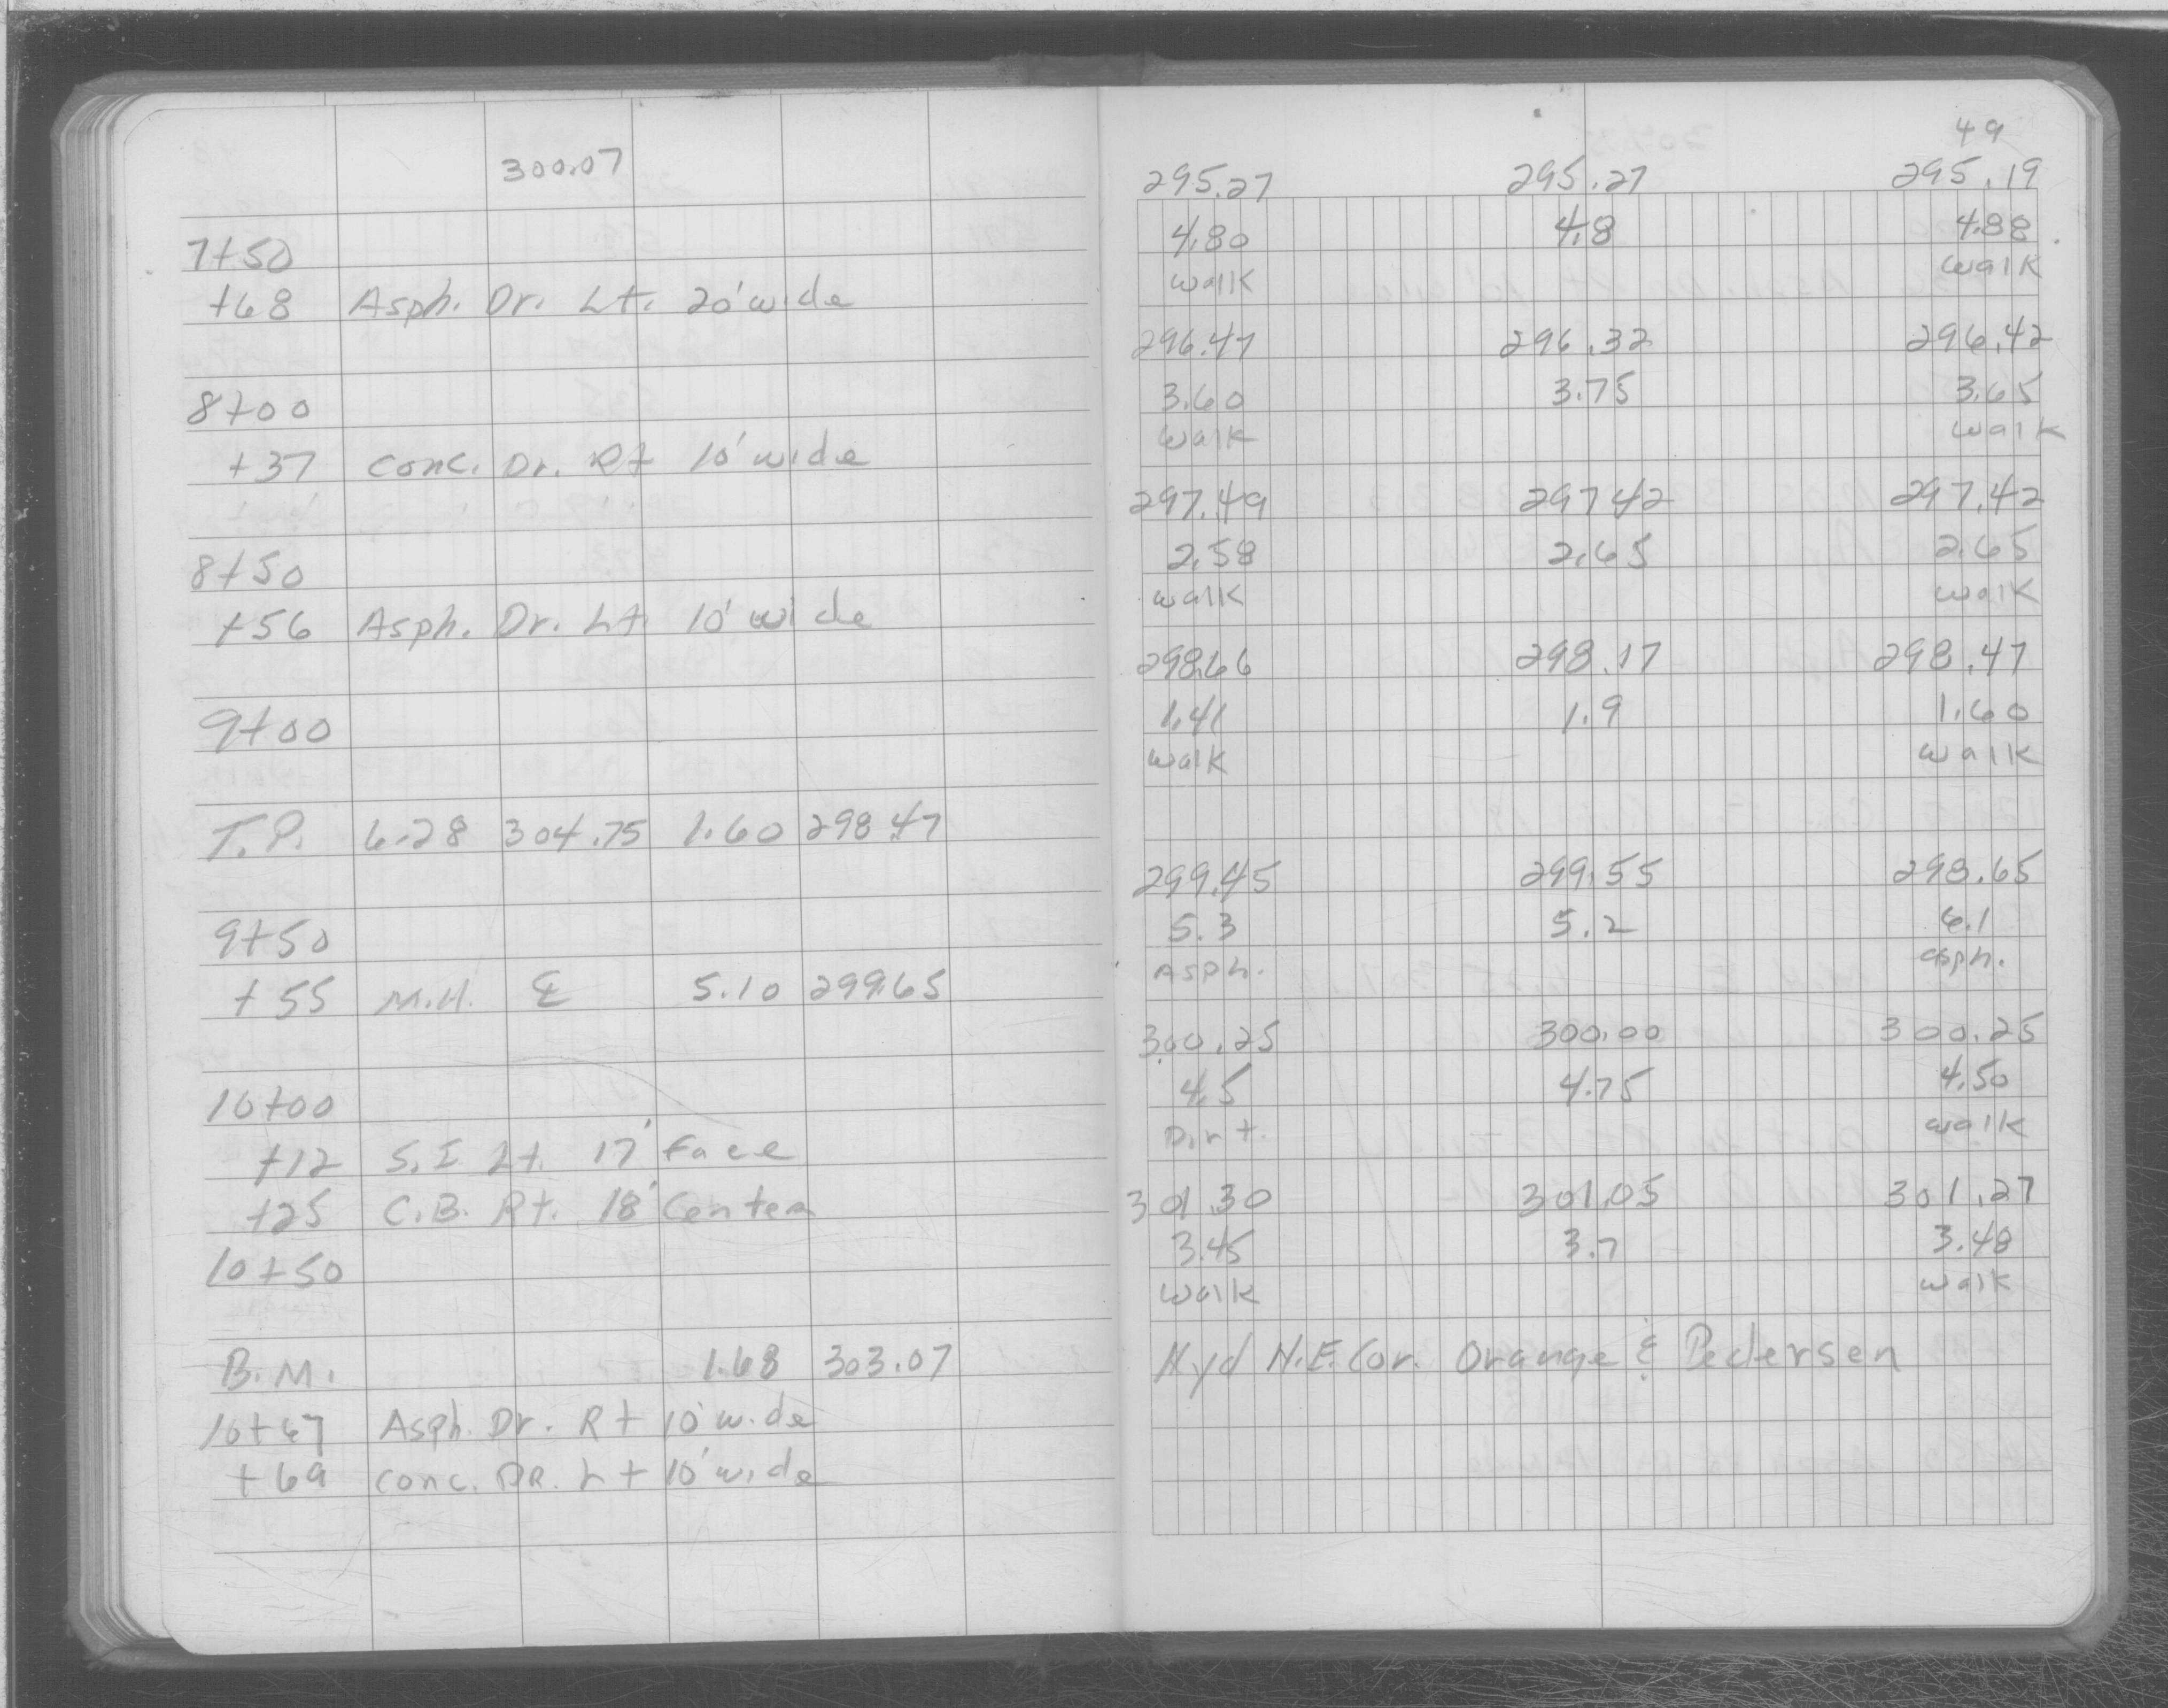 300.07
7+50
+68 Asph. Dr. Lt. 20' wide
8+00
+37 Conc. Dr. Rt 10' wide
8+50
+56 Asph. Dr. Lt. 10' wide
9+00
T.P. 6.28 304.75 1.60 298.47
9+50
+55 M.H. ℄ 5.10 299.65
10+00
+12 S.I Lt. 17' Face
+25 C.B. Rt. 18' Center
10+50
B.M. 1.68 303.07
10+67 Asph. Dr. Rt 10' wide
+69 Conc. DR. Lt 10' wide
49
295.27 295.27 295.19
4.80 4.8 4.88
walk walk
296.47 296.32 296.42
3.60 3.75 3.65
walk walk
297.49 297 42 297.42
2.58 2.65 2.65
walk walk
298.66 298.17 298.47
1.41 1.9 1.60
walk walk
299.45 299.55 298.65
5.3 5.2 6.1
Asph. asph.
300.25 300.00 300.25
4.5 4.75 4.50
Dirt. walk
301.30 301.05 301.27
3.45 3.7 3.48
walk walk
Hyd N.E. Cor. Orange & Pedersen